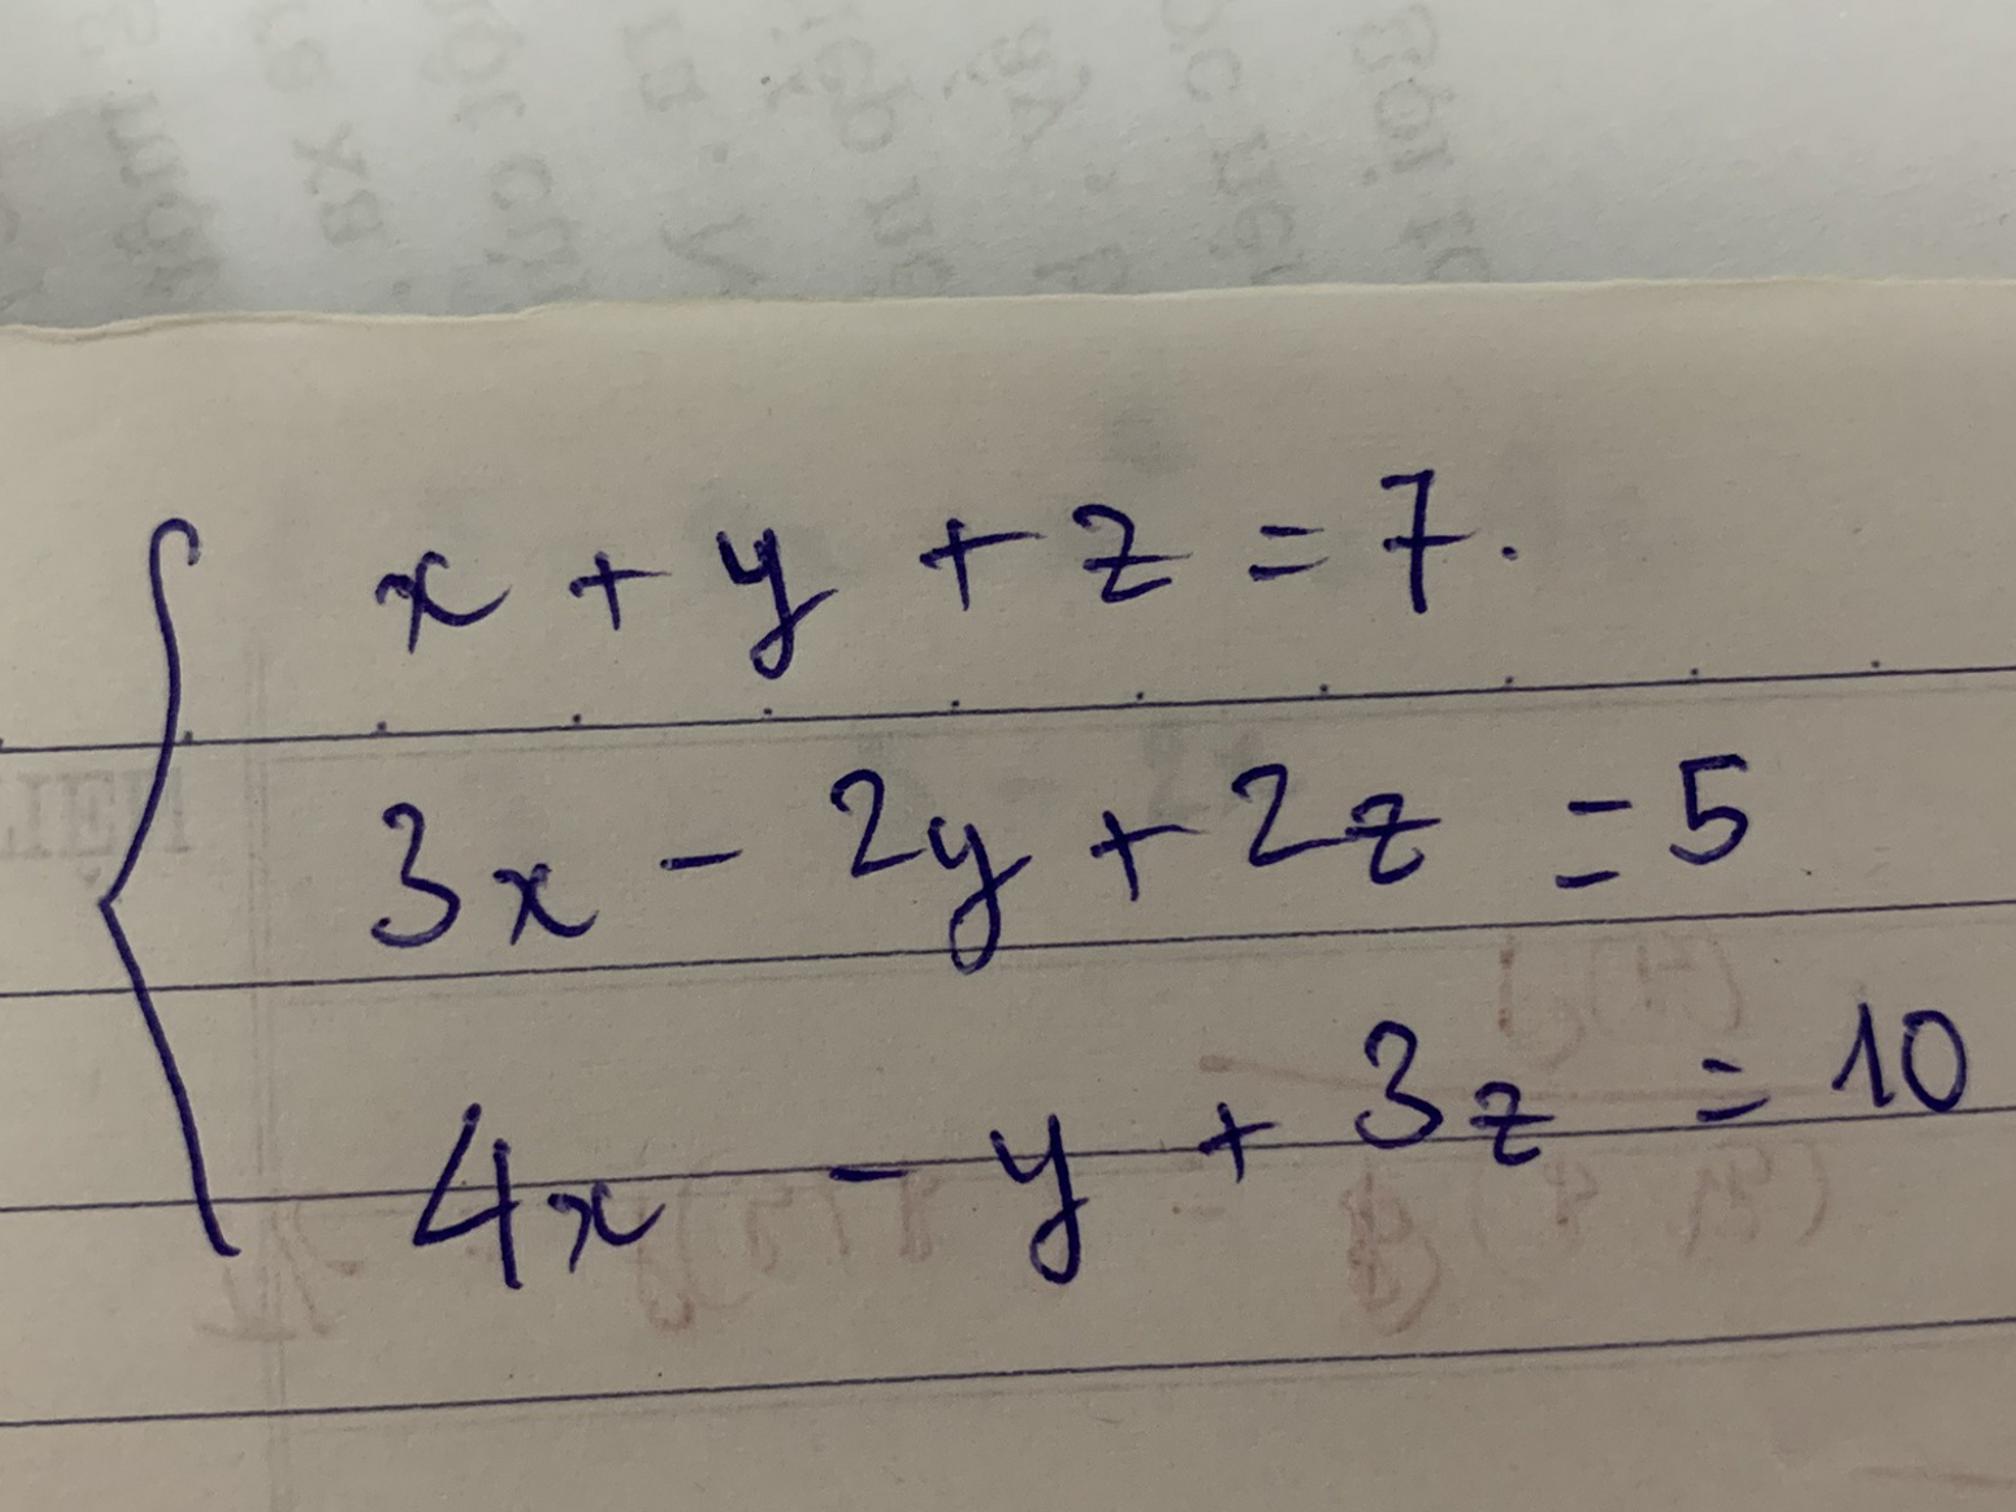 x + y + z = 7.
3x - 2y + 2z = 5
4x - y + 3z = 10